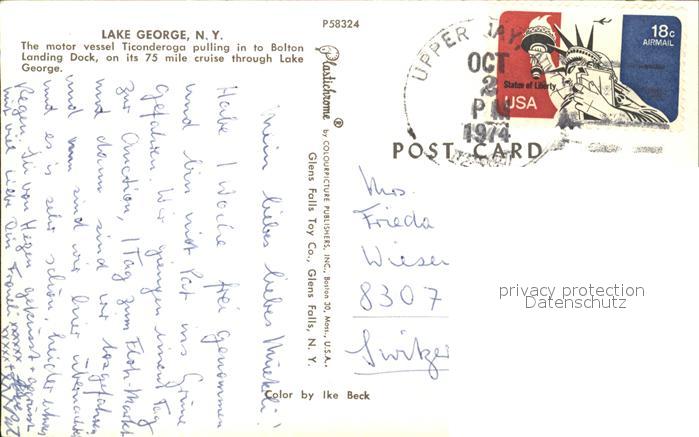 LAKE GEORGE, N. Y.
The motor vessel Ticonderoga pulling in to Bolton
Landing Dock, on its 75 mile cruise through Lake
George.
P58324
Plastichrome ® by COLOURPICTURE PUBLISHERS, INC., Boston 30, Mass., U.S.A.
Glens Falls Toy Co., Glens Falls, N. Y.
Color by Ike Beck
POST CARD
UPPER JAY
OCT
2
PM
1974
18c
AIRMAIL
Statue of Liberty
USA
Mrs.
Frieda
Wieser
8307
Switzer
privacy protection
Datenschutz
Mein liebes liebes
Habe 1 Woche frei genommen
und bin mit Pat ins Grüne
gefahren. Wir giengen einen Tag
zur Auction, 1 Tag zum Floh-Markt
und dann sind wir losgefahren
und nun sind wir hier
und es ist sehr schön, leider
Regen. Sei von Herzen geküsst +
mit viel Liebe Dein